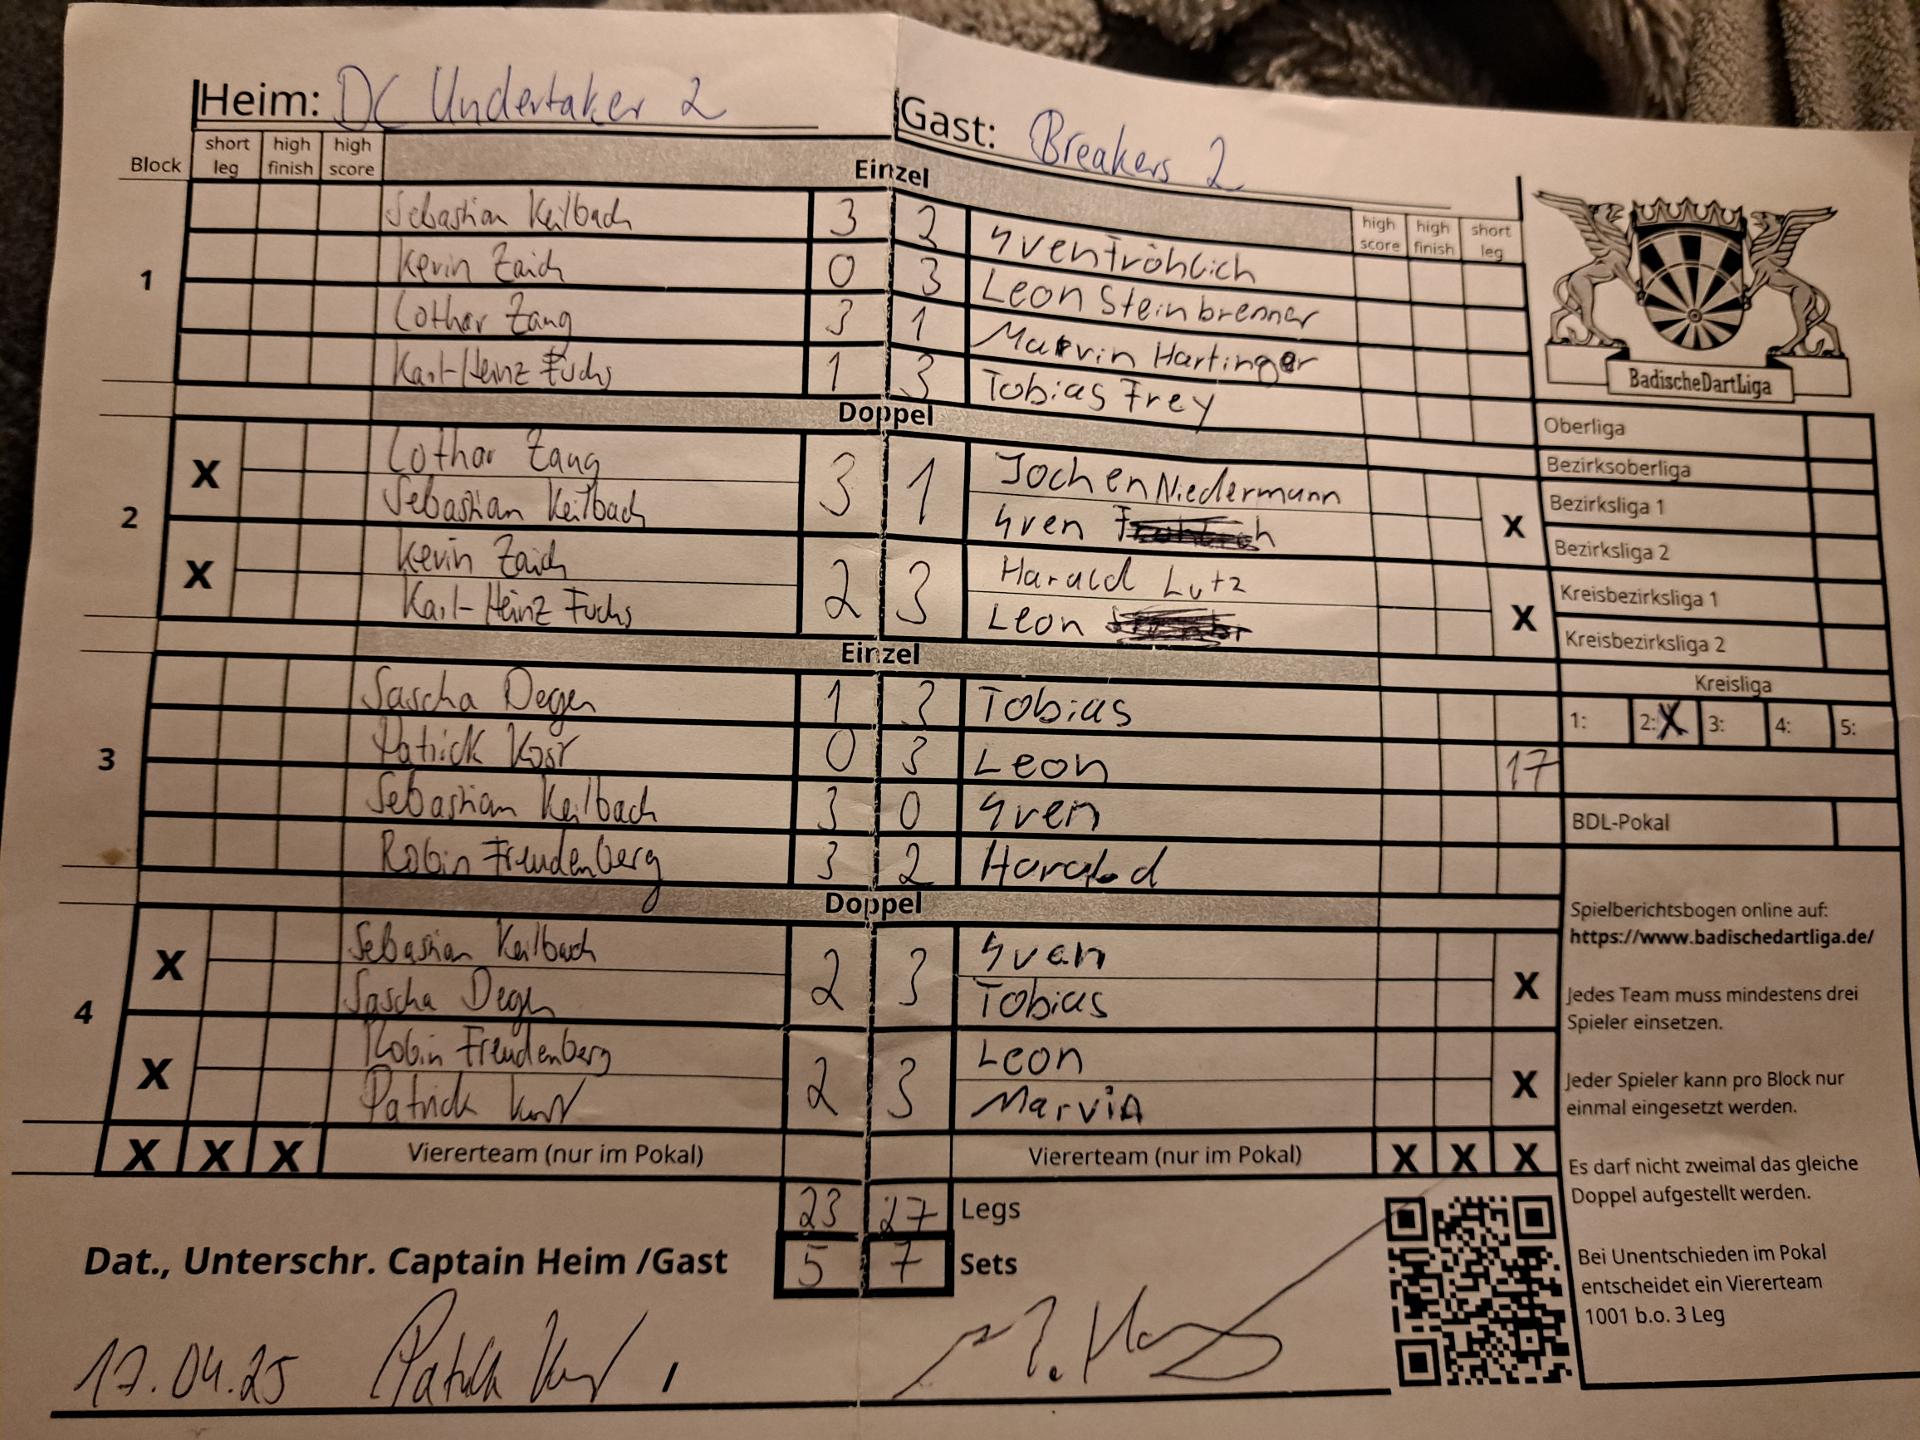 Heim: DC Undertaker 2 Gast: Breakers 2
Block short leg high finish high score Einzel high score high finish short leg
1
Sebastian Keilbach 3 2 Sven Fröhlich
Kevin Zaich 0 3 Leon Steinbrenner
Lothar Zang 3 1 Marvin Hartinger
Karl-Heinz Fuchs 1 3 Tobias Frey
Doppel
2
X Lothar Zang 3 1 Jochen Niedermann X
Sebastian Keilbach Sven
X Kevin Zaich 2 3 Harald Lutz X
Karl-Heinz Fuchs Leon
Einzel
3
Sascha Degen 1 3 Tobias
Patrick 0 3 Leon 17
Sebastian Keilbach 3 0 Sven
Robin Freudenberg 3 2 Harald
Doppel
4
X Sebastian Keilbach 2 3 Sven X
Sascha Degen Tobias
X Robin Freudenberg 2 3 Leon X
Patrick Marvin
X X X Viererteam (nur im Pokal) Viererteam (nur im Pokal) X X X
23 27 Legs
5 7 Sets
Dat., Unterschr. Captain Heim /Gast
17.04.25 Patrick
BadischeDartLiga
Oberliga
Bezirksoberliga
Bezirksliga 1
Bezirksliga 2
Kreisbezirksliga 1
Kreisbezirksliga 2
Kreisliga
1: 2: X 3: 4: 5:
BDL-Pokal
Spielberichtsbogen online auf:
https://www.badischedartliga.de/
Jedes Team muss mindestens drei
Spieler einsetzen.
Jeder Spieler kann pro Block nur
einmal eingesetzt werden.
Es darf nicht zweimal das gleiche
Doppel aufgestellt werden.
Bei Unentschieden im Pokal
entscheidet ein Viererteam
1001 b.o. 3 Leg